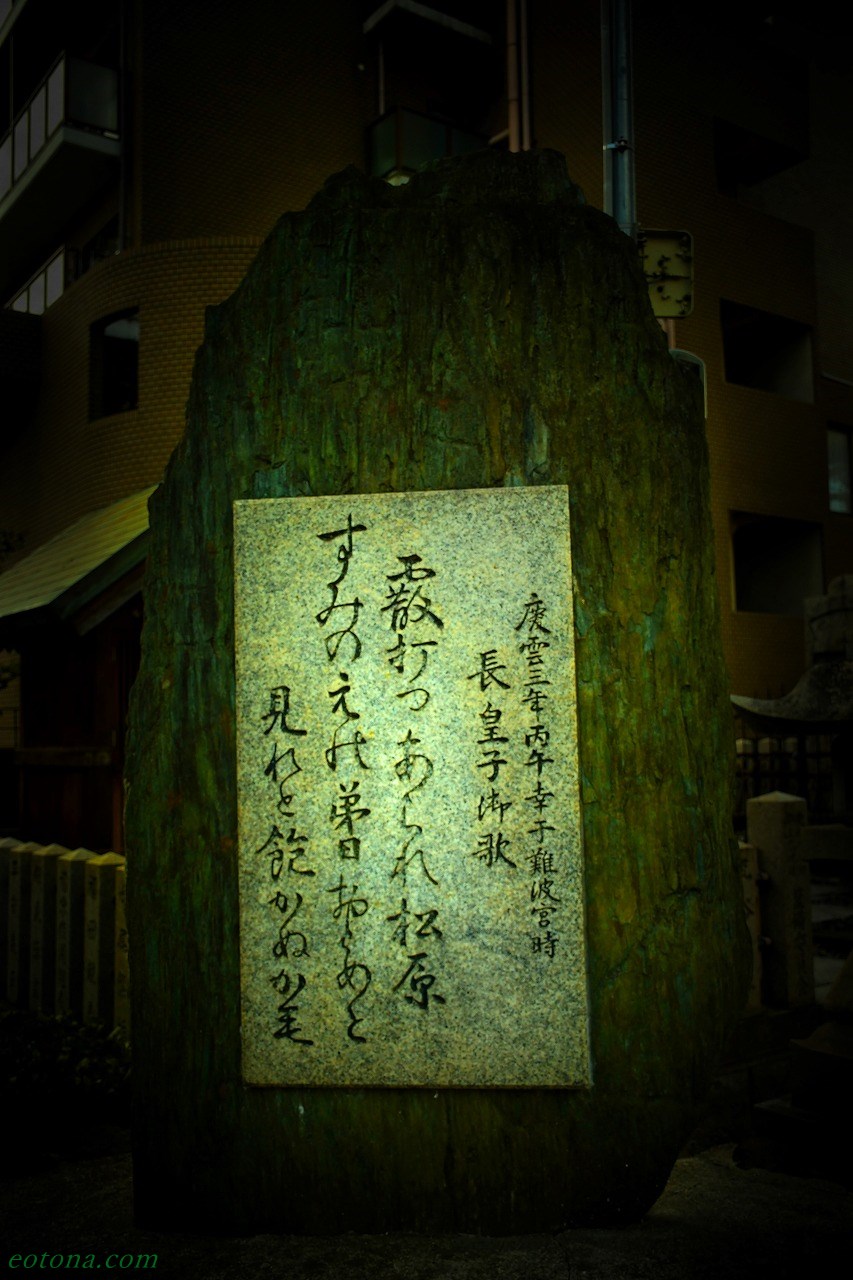 慶雲三年丙午幸于難波宮時
長皇子御歌
霰打つあられ松原
すみの えの弟日おとめと
見れと飽かぬかも
eotona.com